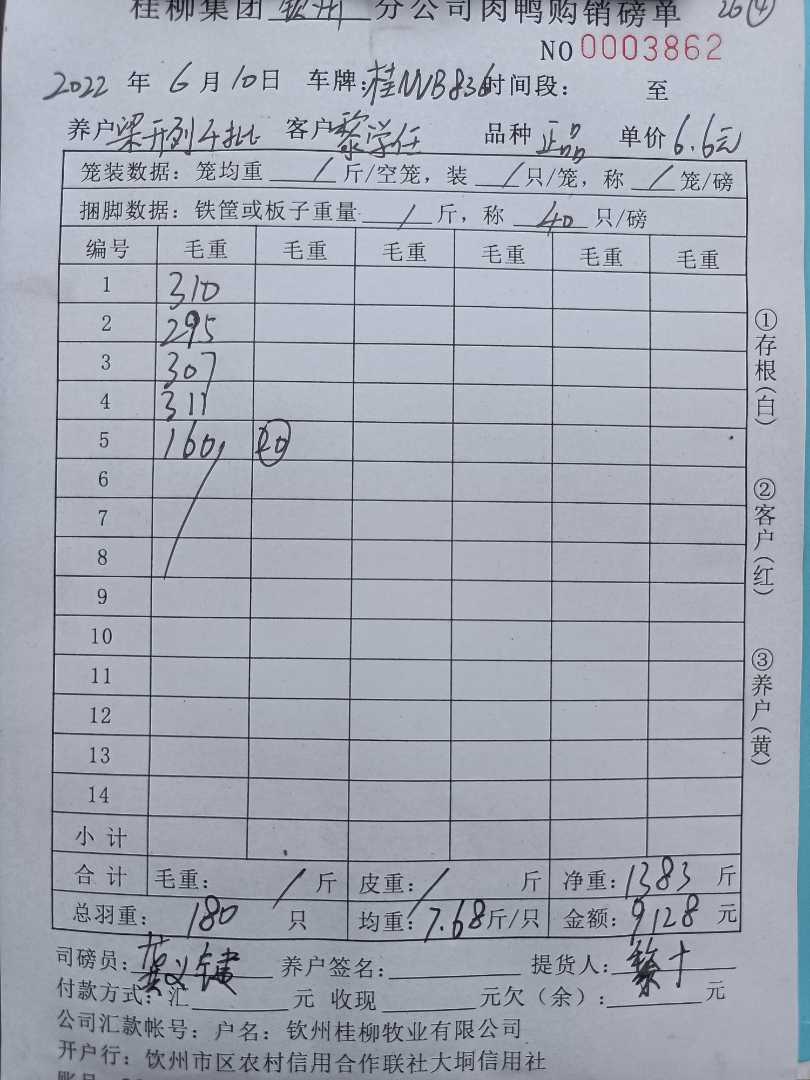 桂柳集团 钦州 分公司肉鸭购销磅单 26④
NO 0003862
2022 年 6 月 10 日 车牌:桂NVB836 时间段: 至
养户 梁开列4批 客户 黎学任 品种 正品 单价 6.6元
笼装数据:笼均重 / 斤/空笼,装 / 只/笼,称 / 笼/磅
捆脚数据:铁筐或板子重量 / 斤,称 40 只/磅
编号 毛重 毛重 毛重 毛重 毛重 毛重
1 310
2 295
3 307
4 311
5 160 20
6
7
8
9
10
11
12
13
14
小计
合计 毛重: / 斤 皮重: / 斤 净重: 1383 斤
总羽重: 180 只 均重: 7.68 斤/只 金额: 9128 元
司磅员: 养户签名: 提货人:
付款方式:汇 元 收现 元欠(余): 元
公司汇款帐号:户名:钦州桂柳牧业有限公司
开户行:钦州市区农村信用合作联社大垌信用社
①存根(白)
②客户(红)
③养户(黄)